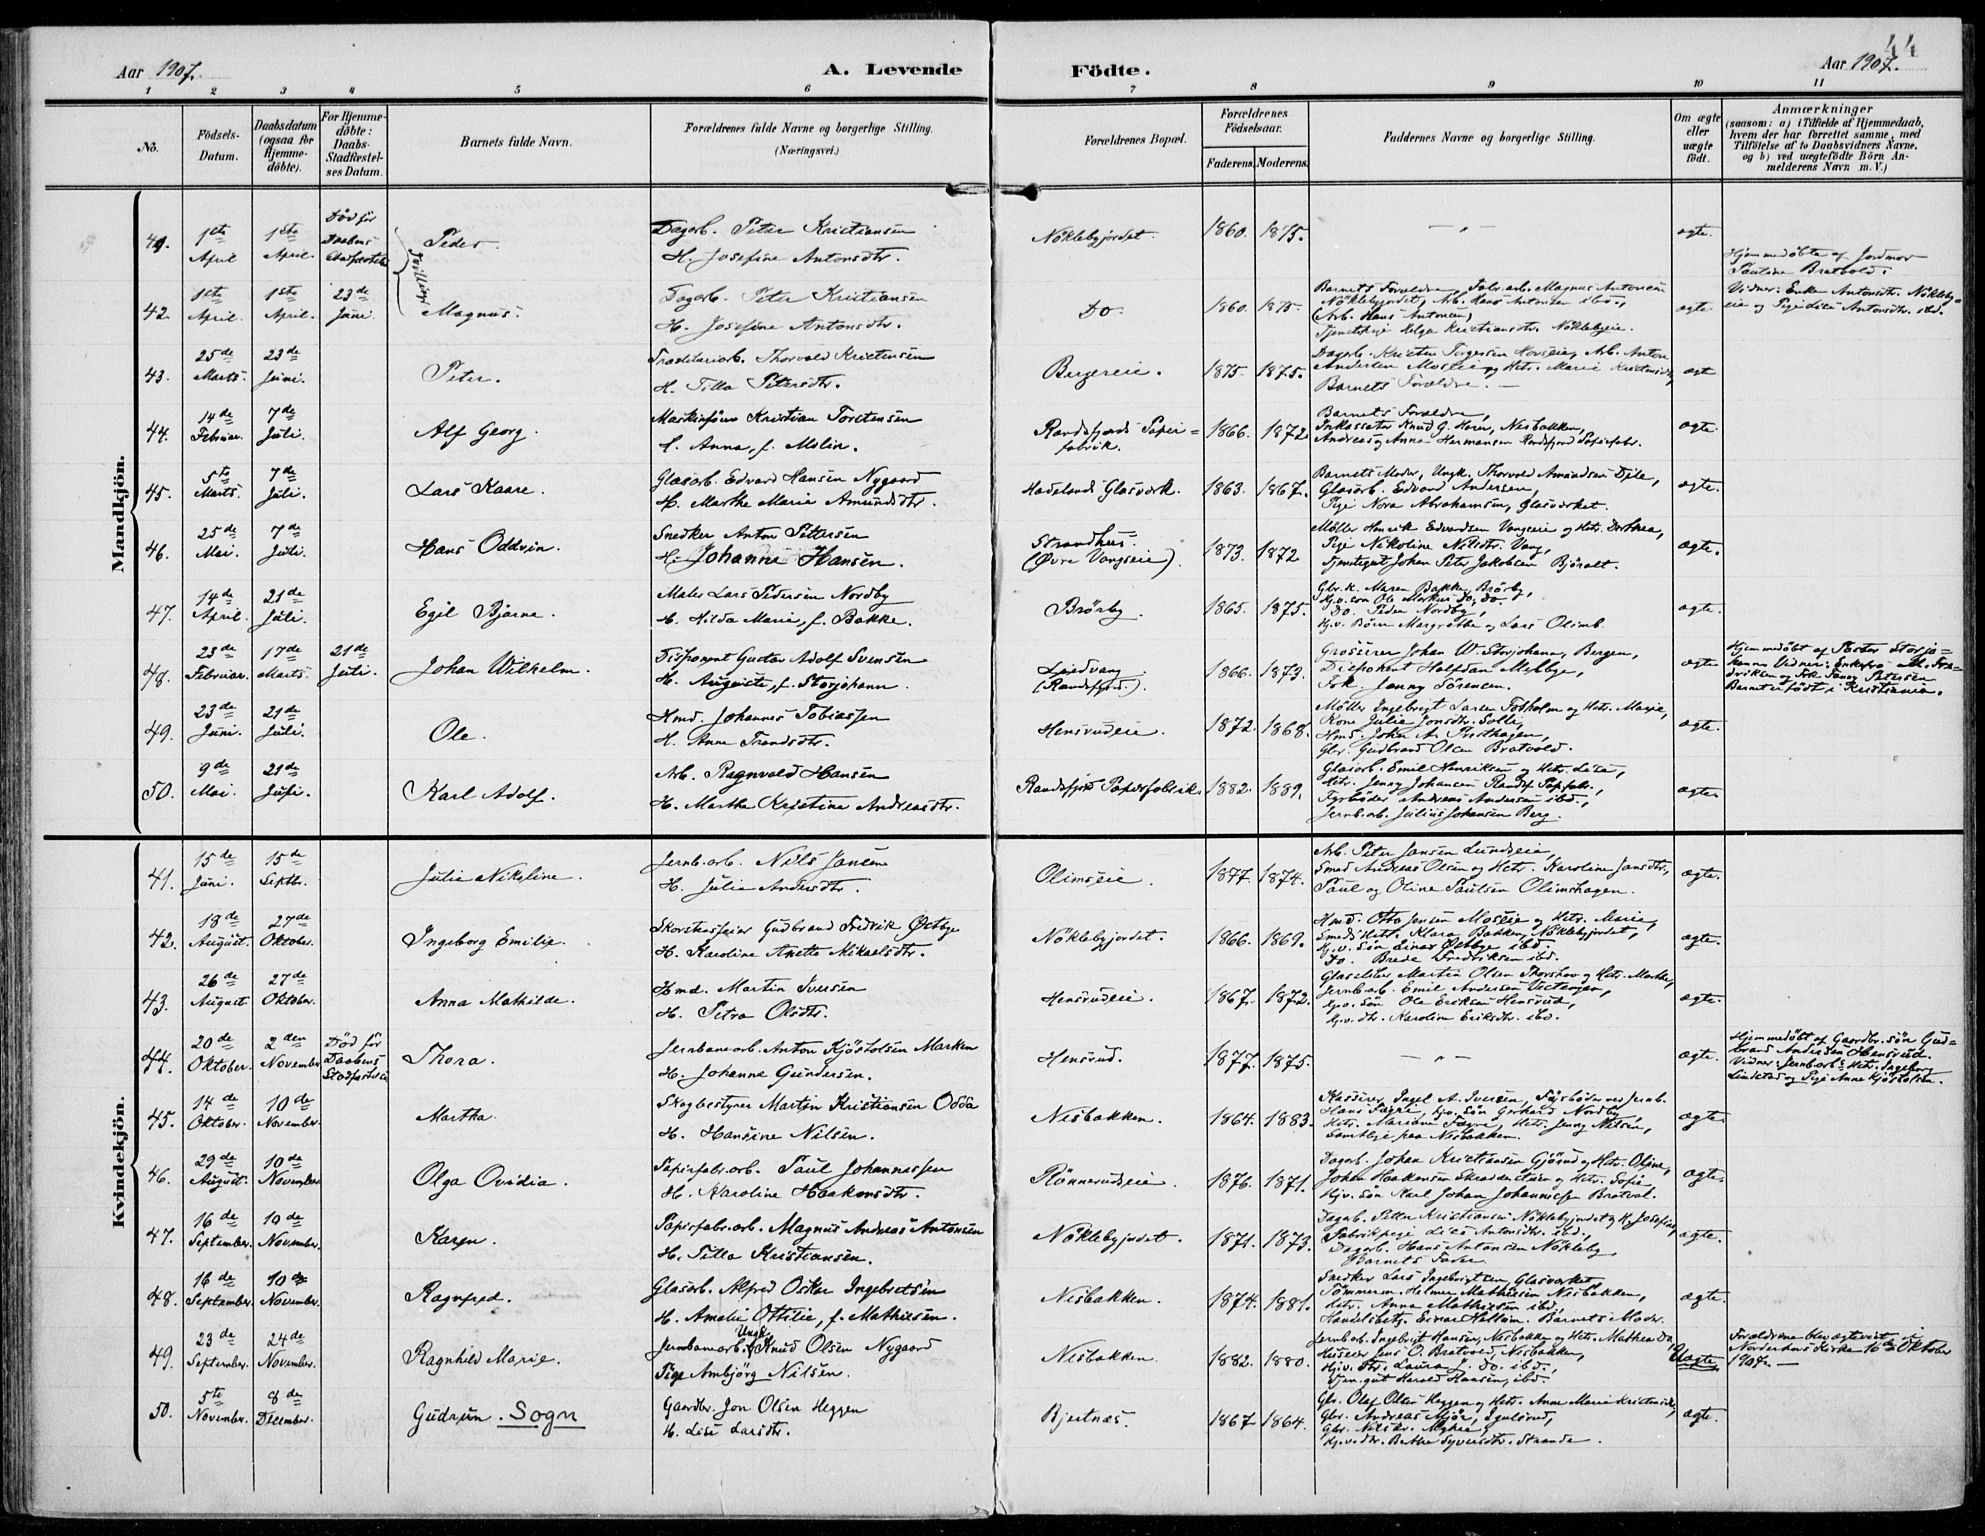 44
Aar 1907.
A. Levende
Födte.
Aar 1907.
1 2 3 4 5 6 7 8 9 10 11
No.
Födsels-Datum.
Daabsdatum (ogsaa for Hjemmedöbte).
For Hjemmedöbte: Daabs-Stadfæstelses Datum.
Barnets fulde Navn.
Forældrenes fulde Navne og borgerlige Stilling. (Næringsvei.)
Forældrenes Bopæl.
Forældrenes Födselsaar.
Faderens. Moderens.
Faddernes Navne og borgerlige Stilling.
Om ægte eller uægte födt.
Anmærkninger (saasom: a) i Tilfælde af Hjemmedaab, hvem der har forrettet samme, med Tilföielse af to Daabsvidners Navne, og b) ved uægtefödte Börn Anmelderens Navn m. V.)
Mandkjön.
41. 1ste April 1ste April. Död før Daabens Stadfæstelse Peder.
Tvillinger
Dagarb. Peter Kristiansen
H. Josefine Antonsdtr.
Nöklebyjordet. 1860. 1875. — " — ægte.
42. 1ste April. 1ste April. 23de Juni. Magnus.
Dagarb. Peter Kristiansen
H. Josefine Antonsdtr.
Do. 1860. 1875.
Barnets Forældre, Fabr.arb. Magnus Antonsen
Nöklebyjordet, Arb. Hans Antonsen ibd.,
(Arb. Hans Antonsen)
Tjenestepige Helga Kristiansdtr. Nöklebyeie.
ægte
Hjemmedöbte af Jordmor
Pauline Bratvold.
Vidner: Enke Antonsdtr. Nökleby=
eie og Pige Lise Antonsdtr. ibd.
43. 25de Marts. 23de Juni. Peter.
Thorvald Kristensen
H. Tilla Petersdtr.
Bergereie. 1875. 1875.
Dagarb. Kristen Torgersen Hovseie, Arb. Anton
Andersen Moseie og Hstr. Marie Kristensdtr,
Barnets Forældre. —
ægte
44. 14de Februar. 7de Juli. Alf Georg.
Maskinförer Kristian Torstensen
H. Anna, f. Molin.
Randsfjords Papir=
fabrik.
1866. 1872
Barnets Forældre,
Inkassator Knud G. Horn, Nesbakken,
Andreas og Anna Hermansen Randsfjord Papirfabr.
ægte.
45. 5te Marts. 7de Juli. Lars Kaare.
Glasarb. Edvard Hansen Nygaard
H. Marthe Marie Amundsdtr.
Hadelands Glasværk. 1863. 1867.
Barnets Moder, Ungk. Thorvald Amundsen Djile,
Glasarb. Edvard Andersen,
Pige Nora Abrahamsen, Glasværket.
ægte.
46. 25de Mai. 7de Juli. Hans Oddvin.
Snedker Anton Pettersen
H. Johanne Hansen.
Strandhus.
(Øvre Vangseie).
1873. 1872
Möller Henrik Edvardsen Vangseie og Hstr. Dorthea,
Pige Nikoline Nilsdtr. Vang,
Tjenestegut Johan Peter Jakobsen Björalt.
ægte.
47. 14de April. 21de Juli. Egil Bjarne.
Maler Lars Pedersen Nordby
H. Hilda Marie, f. Bakke.
Brörby. 1865. 1875.
Gbr.k. Maren Bakke, Brörby,
Hj.v. sön Ole Markus Do, do.
Do. Peder Nordby,
Hj.v. Börn Margrethe og Lars Olimb.
ægte.
48. 23de Februar. 17de Marts. 21de Juli. Johan Wilhelm.
Disponent Gustav Adolf Svensen
H. Auguste, f. Storjohann.
(Randsfjord.)
1866. 1873.
Grosserer Johan W. Storjohann, Bergen,
Disponent Halfdan Melbye,
Frk. Jenny Sörensen.
ægte
Hjemmedöbt af Pastor Storjo=
hann. Vidner: Enkefru M. Fre=
driksen og Frk. Fanny Petersen
Barnet er födt i Kristiania.
49. 23de Juni. 21de Juli. Ole.
Hmd. Johannes Tobiassen
H. Anne Trondsdtr.
Hensrudeie. 1872. 1868.
Möller Ingebrigt Larsen Fosholm og Hstr. Marie,
Kone Julie Jonsdtr. Solli,
Hmd. Johan A. Presthagen,
Gbr. Gudbrand Olsen Bratvold.
ægte.
50. 9de Mai. 21de Juli. Karl Adolf.
Arb. Ragnvald Hansen
H. Marthe Kristine Andreasdtr.
Randsfjord Papirfabrik. 1882. 1889.
Glasarb. Emil Henriksen og Hstr. Lise,
Hstr. Jenny Johansen Randsf. Papirfabr.,
Fyrböder Andreas Andersen ibd.,
Jernb.arb. Julius Johansen Berg.
ægte.
Kvindekjön.
41. 15de Juni. 15de Septbr. Julie Nikoline.
Jernb.arb. Nils Jansen
H. Julie Andersdtr.
Olimseie. 1877. 1874.
Arb. Peter Jansen Lundseie,
Smed Andreas Olsen og Hstr. Karoline Jansdtr.,
Paul og Oline Paulsen Olimshagen.
ægte.
42. 18de August. 27de Oktober. Ingeborg Emilie.
Skorstensfeier Gudbrand Fredrik Østbye
H. Karoline Anette Mikaelsdtr.
Nöklebyjordet. 1866. 1869.
Hmd. Otto Jensen Moseie og Hstr. Marie,
Smeds Hstr. Klara Bakken, Nöklebyjordet,
Hj.v. Sön Einar Østbye ibd.
Do. Brede Fredriksen ibd.
ægte.
43. 26de August. 27de Oktober. Anna Mathilde.
Hmd. Martin Iversen
H. Petra Olsdtr.
Hensrudeie. 1867. 1872.
Glassliber Martin Olsen Thorshov og Hstr. Marthe,
Jernb.arb. Emil Andersen Vestengen,
Hj.v. Sön Ole Eriksen Hensrud,
Hj.v. dtr. Karoline Eriksdtr. ibd.
ægte.
44. 20de Oktober. 2den November. Död før Daabens Stadfæstelse Thora.
Jernbanearb. Anton Kjöstolsen Marken
H. Johanne Gundersen.
Hensrud. 1877. 1875. — " — ægte.
Hjemmedöbt af Gaardbr. sön Gud=
brand Andersen Hensrud.
Vidner: Jernb.arb. Hstr. Ingeborg
Lindstad og Pige Anne Kjöstolsen.
45. 14de Oktober. 10de November. Martha.
Skogbestyrer Martin Kristiansen Odda
H. Hansine Nilsen.
Nesbakken. 1864. 1883.
Kasserer Ingel A. Iversen, Fyrböder ved Jernb.
Hans Fagre, Hj.v. Sön Gerhard Nordby,
Hstr. Mariane Fagre, Hstr. Jenny Nilsen,
Samtlige paa Nesbakken.
ægte.
46. 29de August. 10de November Olga Ovidia.
Papirfabr.arb. Paul Johannessen
H. Karoline Haakonsdtr.
Rönnerudseie. 1876. 1871.
Dagarb. Johan Kristiansen Gjörud og Hstr. Oline,
Johan Haakensen og Hstr. Sofie,
Hj.v. Sön Karl Johan Johannessen Bratval.
ægte.
47. 16de September. 10de November. Karen.
Papirfabr.arb. Magnus Andreas Antonsen
H. Tilla Kristiansen.
Nöklebyjordet. 1871. 1873.
Dagarb. Petter Kristiansen Nöklebyjordet og H. Josefine,
Fabrikpige Lise Antonsdtr. ibd.,
Dagarb. Hans Antonsen Nökleby
Barnets Fader.
ægte.
48. 16de September. 10de November. Ragnfred.
Glasarb. Alfred Oskar Ingebretsen
H. Amalie Ottilie, f. Mathiesen.
Nesbakken. 1874. 1881.
Snedker Lars Ingebrigtsen, Glasværket,
Tömmerm. Helmer Mathiesen Nesbakken,
Hstr. Anna Mathiesen ibd.,
Handelsbetj. Einar Hellum. Barnets Moder.
ægte.
49. 23de September. 24de November. Ragnhild Marie.
Jernbanearb. Ungk. Knud Olsen Nygaard
Pige Ambjörg Nilsen.
Nesbakken. 1882. 1880.
Jernb.arb. Ingebrigt Hansen, Nesbakken og Hstr. Mathea Do,
Huseier Jens O. Bratvold, Nesbakken,
Hj.v. Dtr. Laura J. Do. ibd.,
Tjen.gut Harald Hansen, ibd.
Uægte
Forældrene blev ægteviet i
Norderhovs Kirke 16de Oktober
1907. —
50. 5te November. 8de December. Gudrun. Sogn
Gaardbr. Jon Olsen Heggen
H. Lise Larsdtr.
Bjertnæs. 1867 1864.
Gbr. Olaf Olsen Heggen og Hstr. Anne Marie Kristensdtr,
Gbr. Andreas Mjör, Igulsrud,
Gbr. Nilskr. Myhre,
Hj.v. dtr. Berthe Syversdtr. Stranda.
ægte.